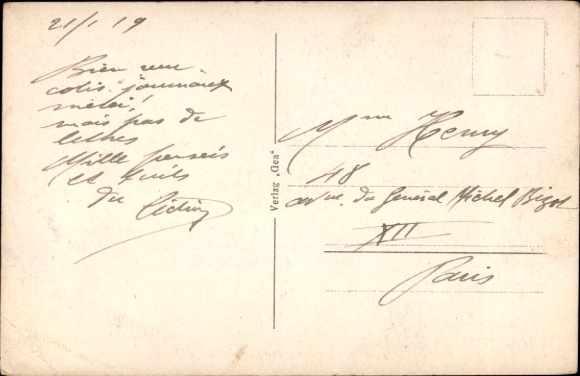 21/1 19
Bien reçu
colis. journaux
merci!
mais pas de
lettres
Mille pensées
et
du
Verlag „Gea"
Mme Henry
48
Avue. du Général Michel Bizot
XII
Paris